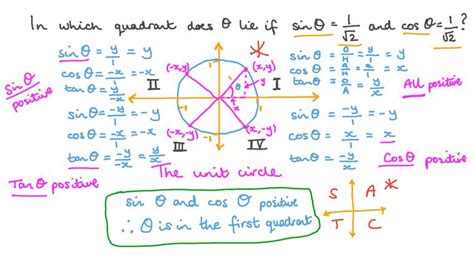 In which quadrant does θ lie if sinθ = 1/√2 and cosθ = 1/√2?
sinθ = y/1 = y
cosθ = -x/1 = -x
tanθ = y/-x
sinθ positive
II
(-x,y)
(x,y)
1
-1
1
-1
θ
x
y
I
sinθ = O/H = y/1 = y
cosθ = A/H = x/1 = x
tanθ = O/A = y/x
All positive
sinθ = -y/1 = -y
cosθ = -x/1 = -x
tanθ = -y/-x = y/x
Tanθ positive
III
(-x,-y)
(x,-y)
IV
sinθ = -y/1 = -y
cosθ = x/1 = x
tanθ = -y/x
Cosθ positive
The unit circle
sinθ and cosθ positive
∴ θ is in the first quadrant
S A
T C